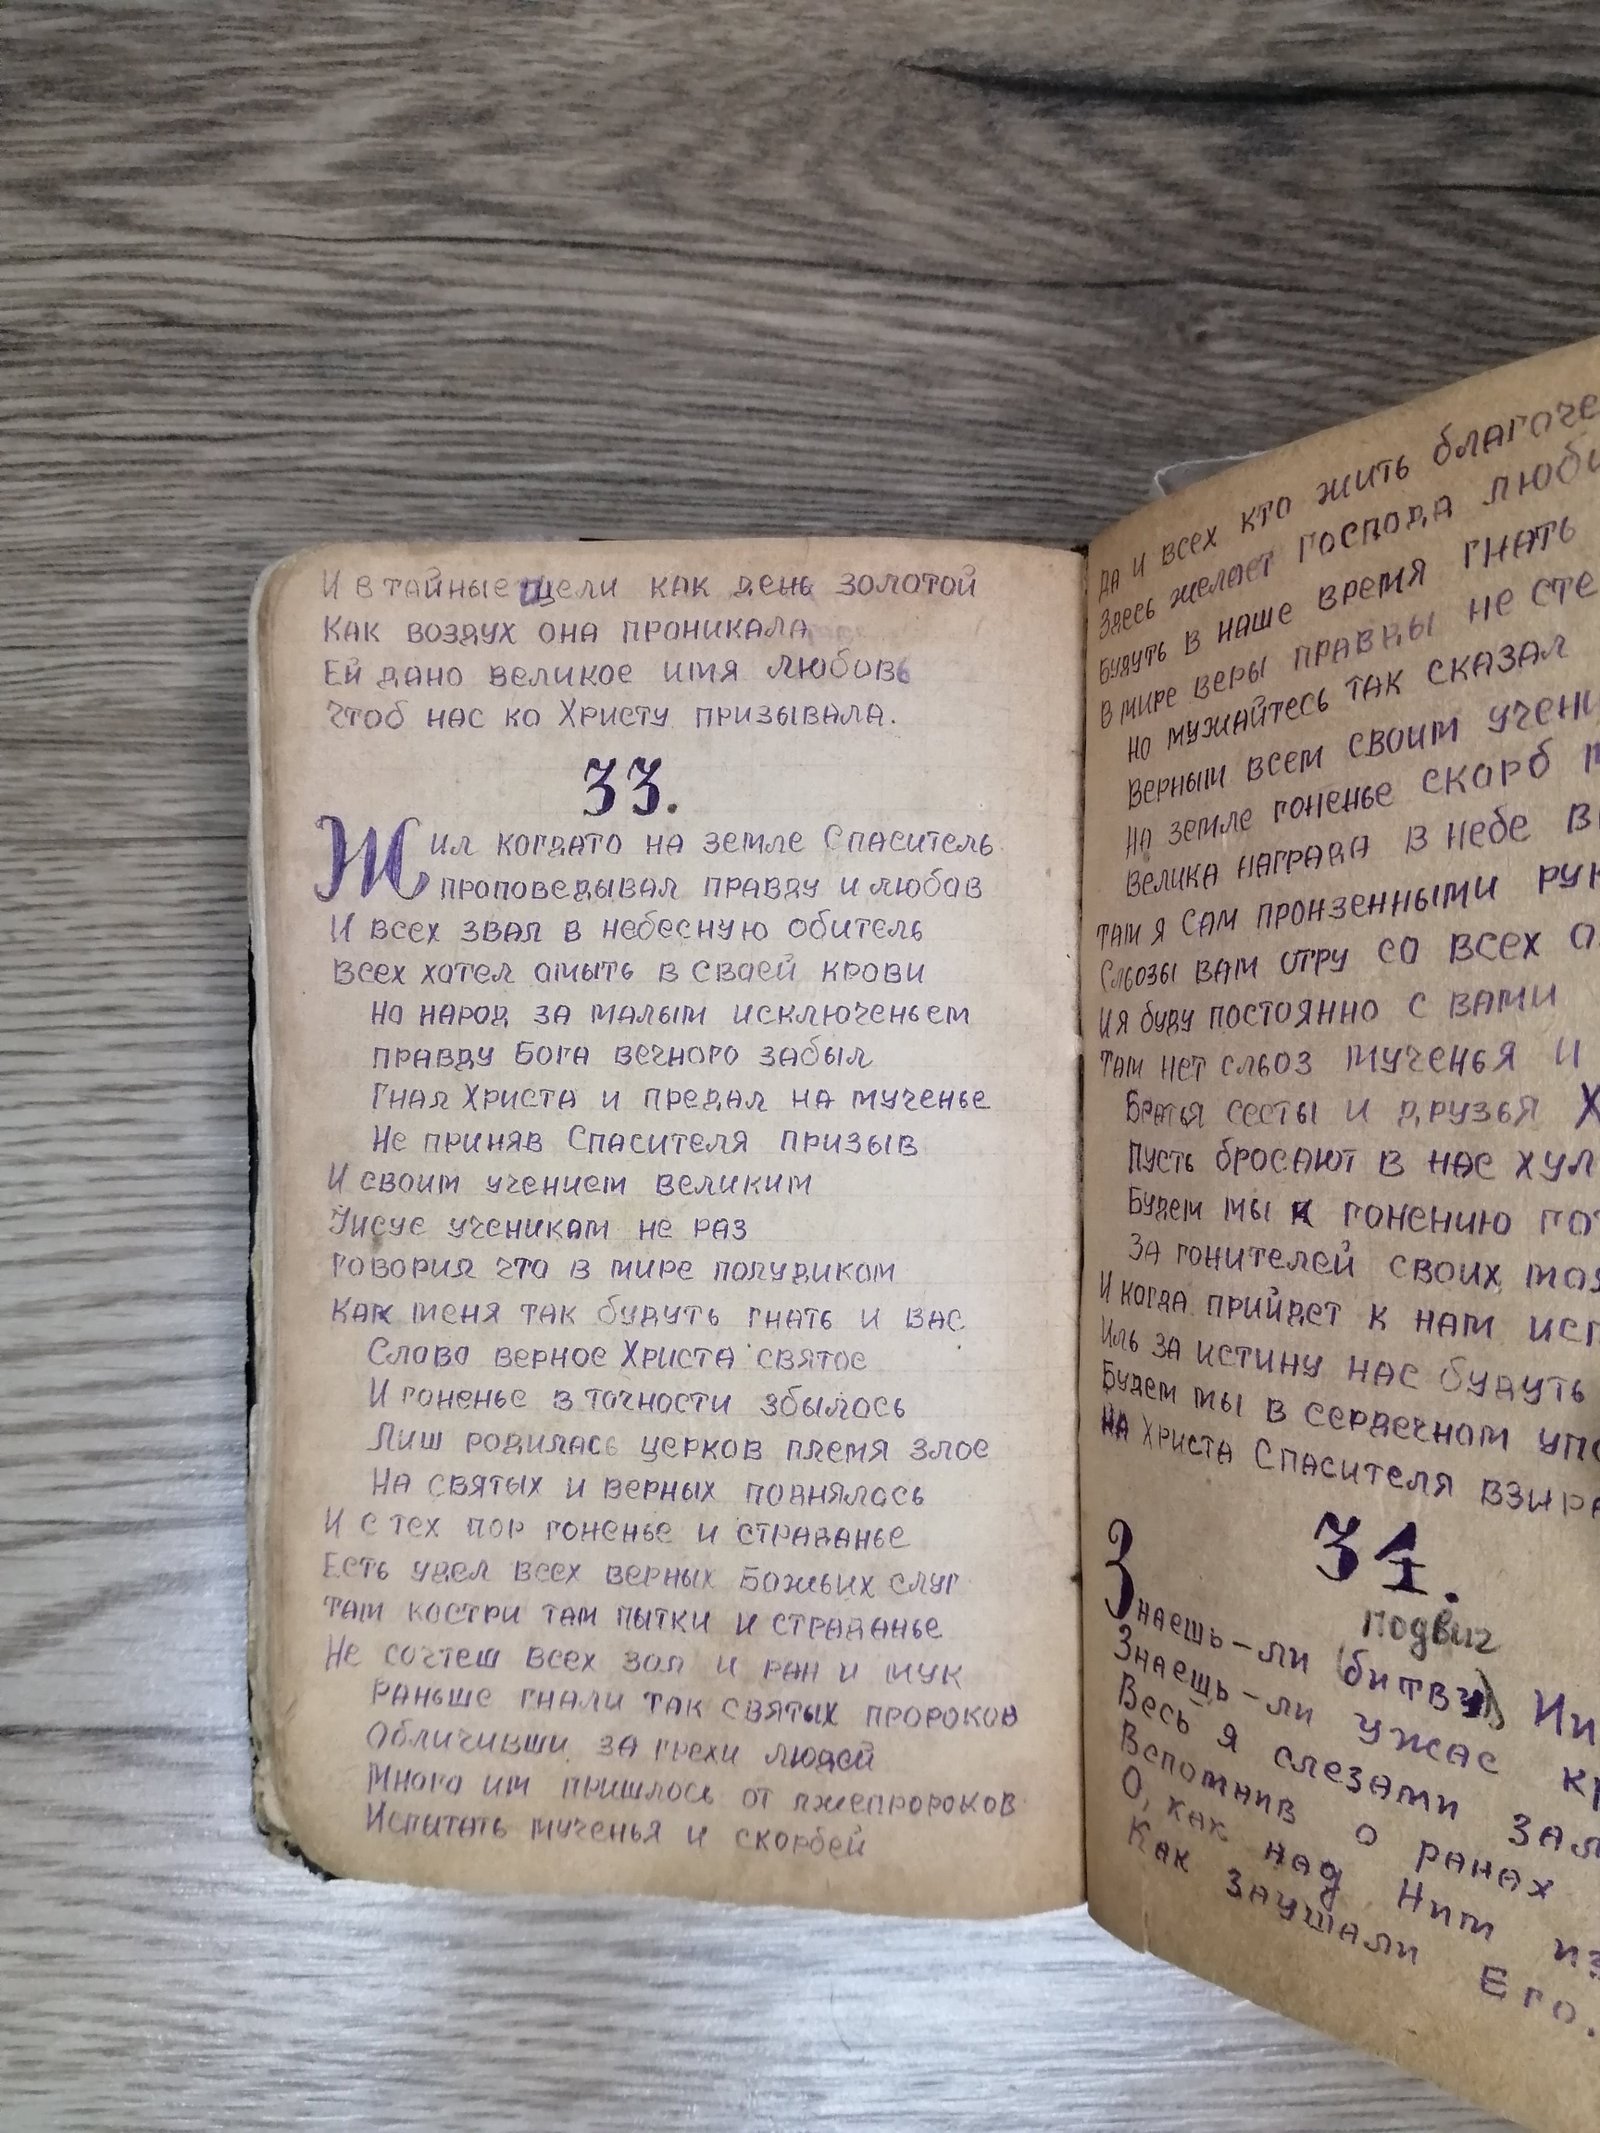 И в тайные щели как день золотой
Как воздух она проникала
Ей дано великое имя любовь
Чтоб нас ко Христу призывала.
33.
Жил когдато на земле Спаситель
проповедывал правду и любов
И всех звал в небесную обитель
Всех хотел омыть в своей крови
Но народ за малым исключеньем
правду Бога вечного забыл
Гнал Христа и предал на мученье
Не приняв Спасителя призыв
И своим учением великим
Иисус ученикам не раз
Говорил что в мире полудиком
Как меня так будуть гнать и вас
Слово верное Христа святое
И гоненье в точности збылось
Лиш родилась церков племя злое
На святых и верных поднялось
И с тех пор гоненье и страданье
Есть удел всех верных Божьих слуг
Там костри там пытки и страданье
Не сочтеш всех зол и ран и мук
Раньше гнали так святых пророков
Обличивши за грехи людей
Много им пришлось от лжепророков
Испытать мученья и скорбей
Да и всех кто жить благоче
Здесь желает Господа люби
Будуть в наше время гнать
В мире веры правды не сте
Но мужайтесь так сказал
Верным всем своим учени
На земле гоненье скорб
Велика награда в небе
Там я сам пронзенными рук
Сльозы вам отру со всех о
И я буду постоянно с вами
Там нет сльоз мученья и
Братья сесты и друзья Х
Пусть бросают в нас хул
Будем мы к гонению го
За гонителей своих мо
И когда прийдет к нам исп
Иль за истину нас будуть
Будем мы в сердечном упо
На Христа Спасителя взира
34.
подвиг
Знаешь-ли (битву) Ии
Знаешь-ли ужас кр
Весь я слезами зал
Вспомнив о ранах
О, как над Ним из
Как заушали Его.